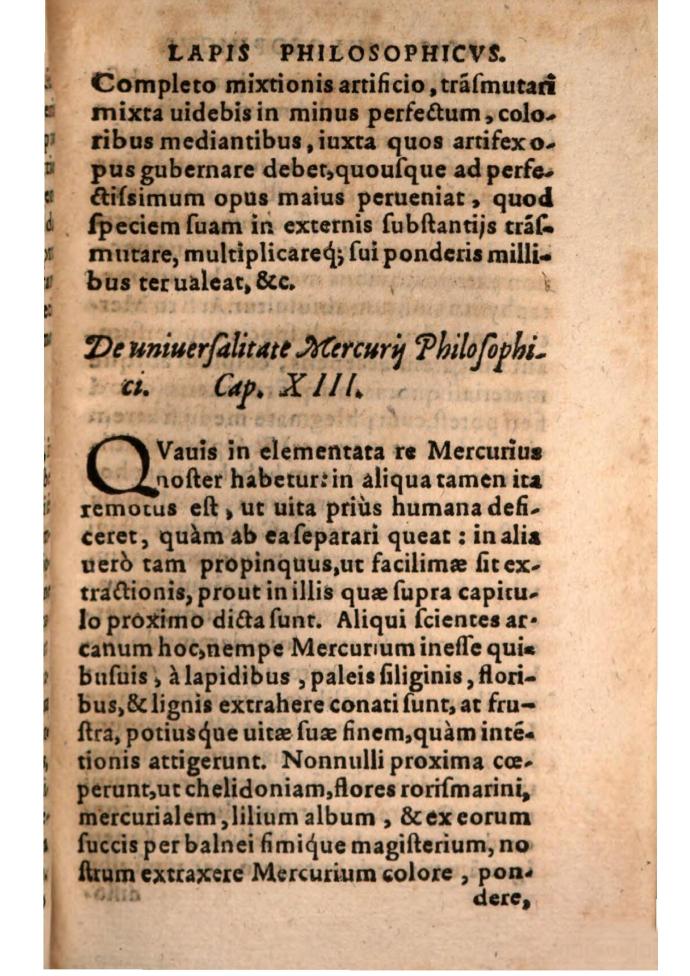 LAPIS PHILOSOPHICVS.
Completo mixtionis artificio, trãſmutari
mixta uidebis in minus perfectum, colo-
ribus mediantibus, iuxta quos artifex o-
pus gubernare debet, quouſque ad perfe-
ctiſsimum opus maius perueniat, quod
ſpeciem ſuam in externis ſubſtantijs trãſ-
mutare, multiplicareq́; ſui ponderis milli-
bus ter ualeat, &c.
De uniuerſalitate Mercurij Philoſophi-
ci. Cap. XIII.
QVauis in elementata re Mercurius
noſter habetur: in aliqua tamen ita
remotus eſt, ut uita priùs humana defi-
ceret, quàm ab ea ſeparari queat: in alia
uerò tam propinquus, ut facilimæ ſit ex-
tractionis, prout in illis quæ ſupra capitu-
lo proximo dicta ſunt. Aliqui ſcientes ar-
canum hoc, nempe Mercurium ineſſe qui-
buſuis, à lapidibus, paleis ſiliginis, flori-
bus, & lignis extrahere conati ſunt, at fru-
ſtra, potiusq́ue uitæ ſuæ finem, quàm intẽ-
tionis attigerunt. Nonnulli proxima cœ-
perunt, ut chelidoniam, flores roriſmarini,
mercurialem, lilium album, & ex eorum
ſuccis per balnei fimiq́ue magiſterium, no
ſtrum extraxere Mercurium colore, pon-
dere,